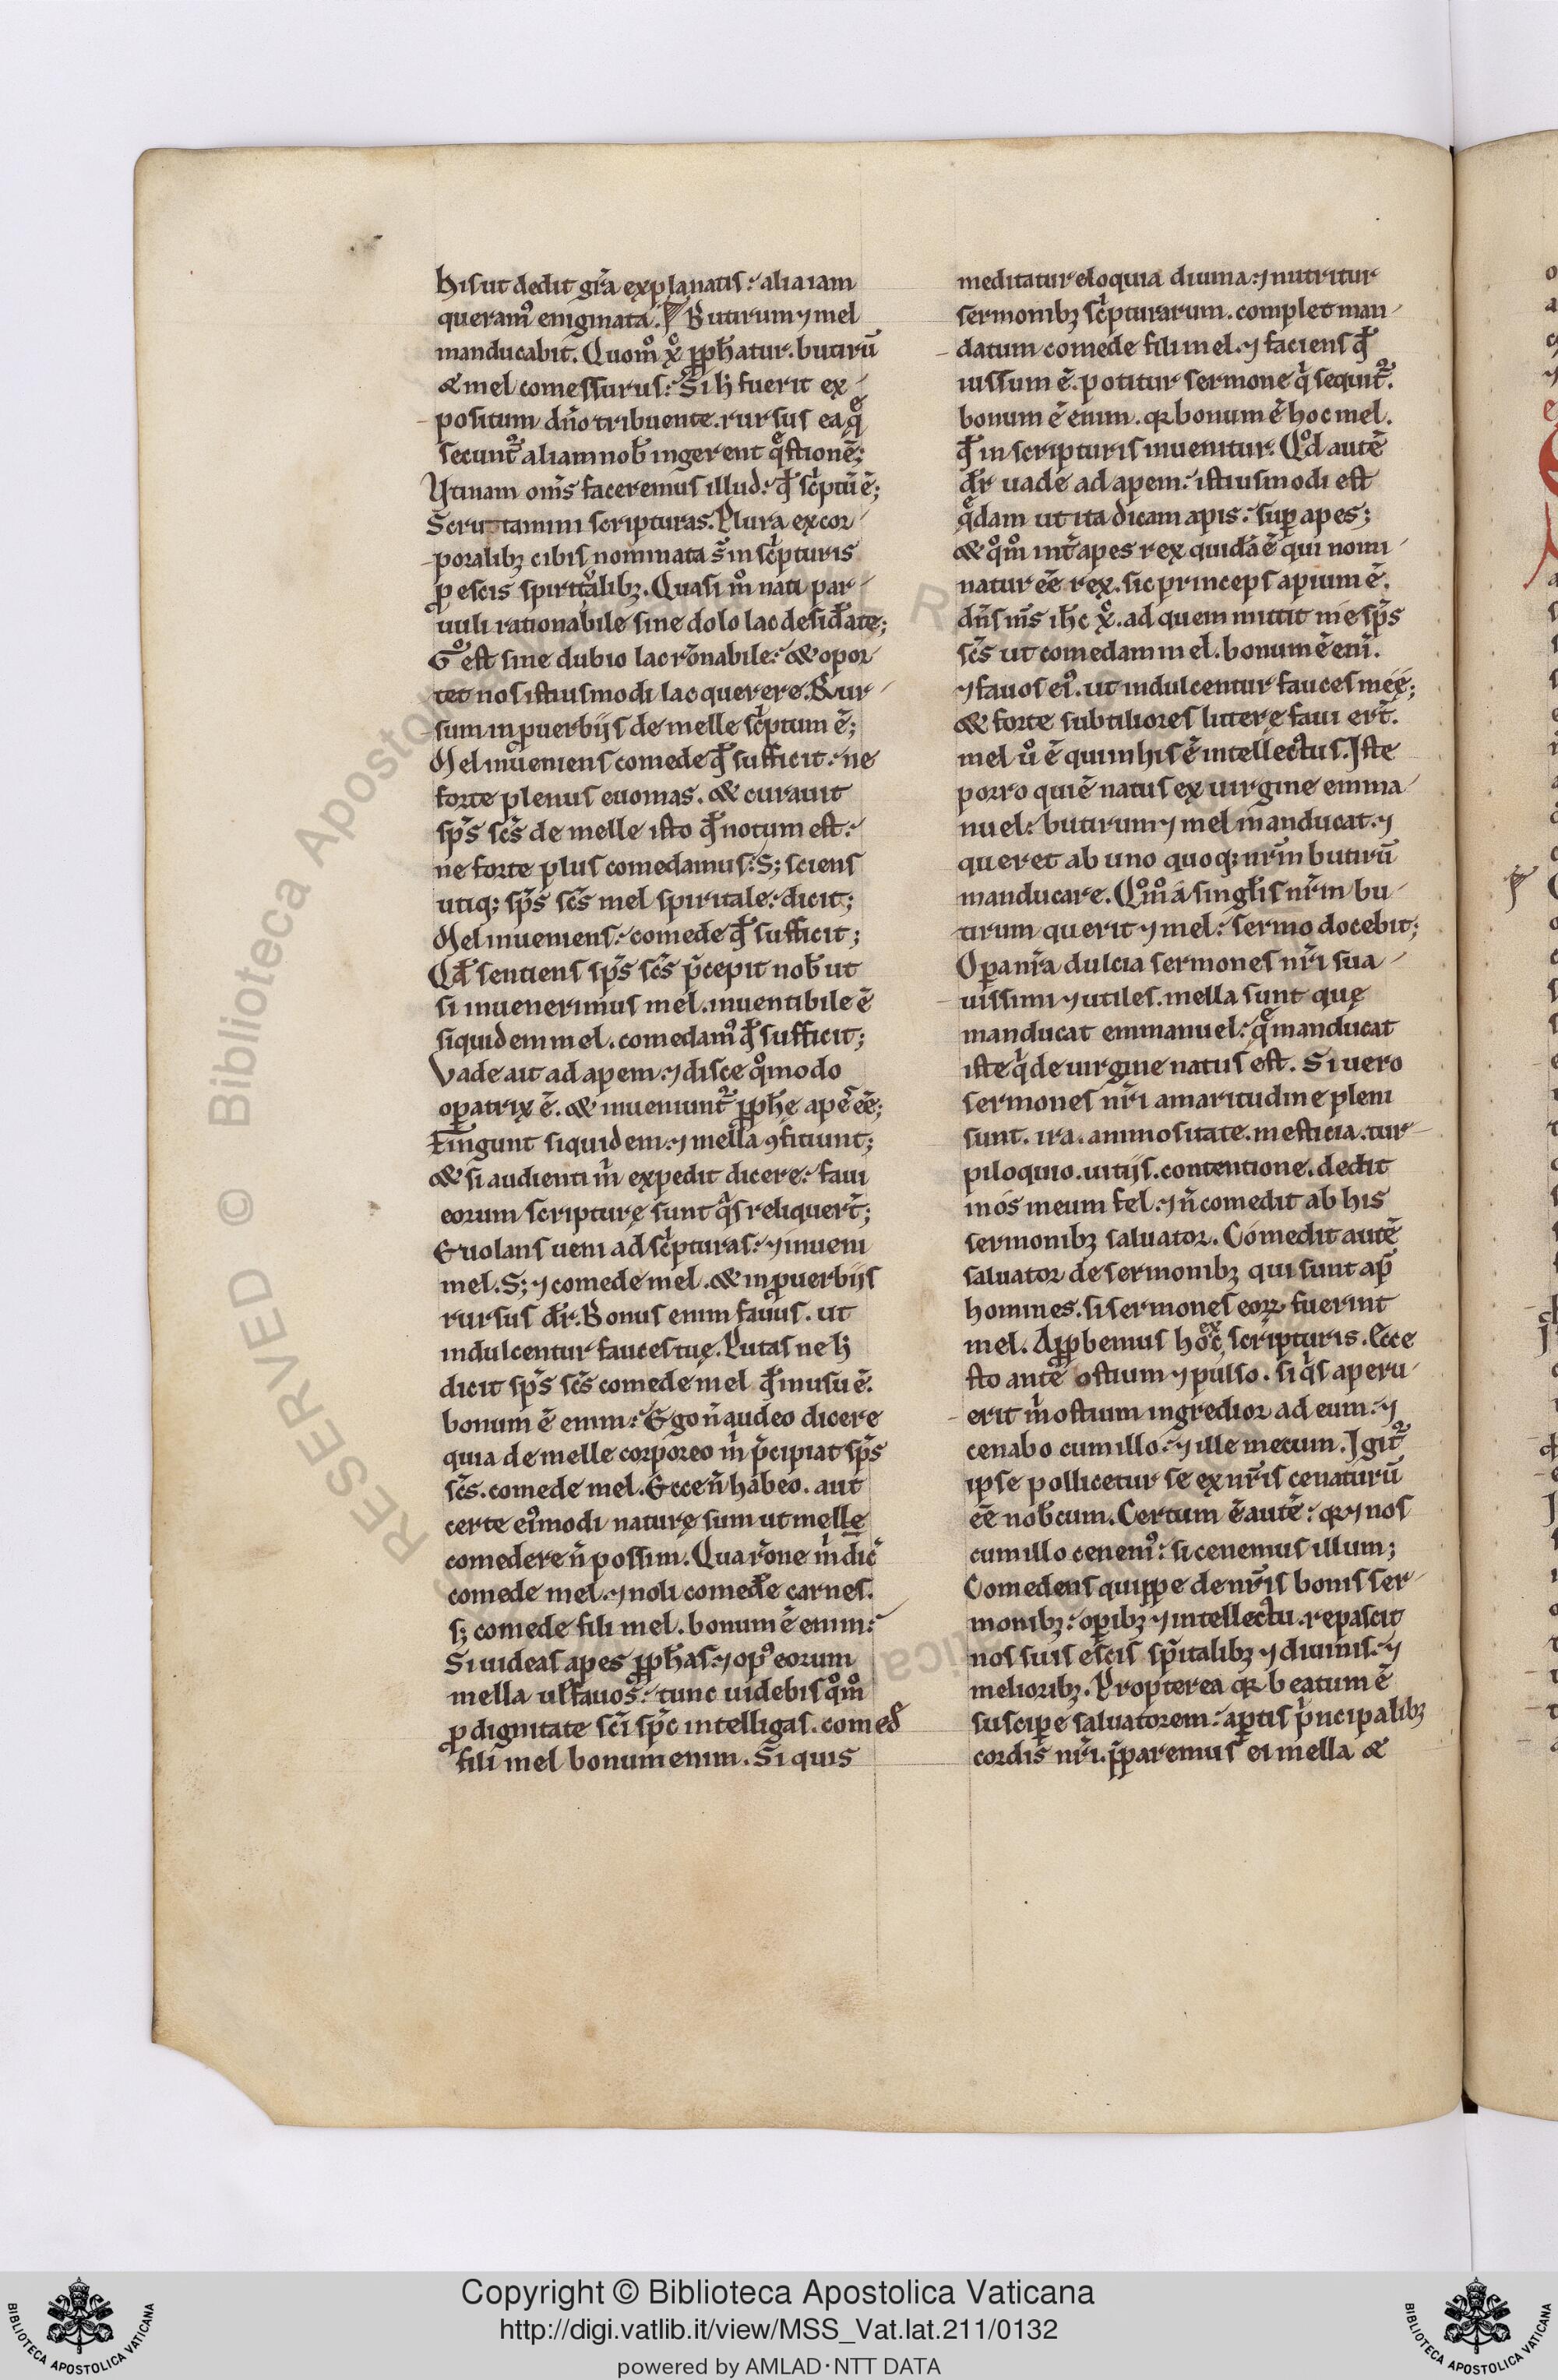 hiſ ut dedit gr̄a explanatiſ: alia iam
queramꝰ enigmata. Butirum ⁊ mel
manducabit. Quom̊ xp̊ ꝓph̄atur. butirū
& mel comeſſuruſ: Si h̄ fuerit ex
poſitum dn̄o tribuente. rurſuſ ea q̄
ſecunt᷑ aliam nob̄ ingerent q̄ſtionē;
Utinam om̄ſ faceremuſ illud: qd̄ ſc̓ptū ē;
Scrutamini ſcripturaſ. Plura ex cor
poralibꝫ cibiſ nominata ſ̄ in ſc̓pturiſ
ꝓ eſciſ ſpirit̓alibꝫ. Quaſi m̊ nati par
uuli rationabile ſine dolo lac deſid̄ate;
G̊ eſt ſine dubio lac ron̄abile: & opor
tet noſ iſtiuſmodi lac querere. Rur
ſum in ꝓuerbijſ de melle ſc̓ptum ē;
Mel inuenienſ comede qd̄ ſufficit: ne
forte plenuſ euomaſ. & curauit
ſp̄ſ ſc̄ſ de melle iſto qd̄ notum eſt:
ne forte pluſ comedamuſ: Sꝫ ſcienſ
utiqꝫ ſp̄ſ ſc̄ſ mel ſpiritale: dicit;
Mel inuenienſ: comede qd̄ ſufficit;
Qd̄ ſentienſ ſp̄ſ ſc̄ſ p̄cepit nob̄ ut
ſi inuenerimuſ mel. inuentibile ē
ſiquidem mel. comedamꝰ qd̄ ſufficit;
Vade ait ad apem: ⁊ diſce qͦmodo
oꝑatrix ē. & inueniunt᷑ ꝓph̄ę apeſ eē;
Fingunt ſiquidem: ⁊ mella ꝯficiunt;
& ſi audienti m̓ expedit dicere: faui
eorum ſcripturę ſunt q̓ſ reliquer̄t;
Euolanſ ueni ad ſc̓pturaſ: ⁊ inueni
mel. Sꝫ ⁊ comede mel. & in ꝓuerbijſ
rurſuſ dr̄. Bonuſ enim fauuſ. ut
indulcentur fauceſ tuę. Putaſ ne h̄
dicit ſp̄ſ ſc̄ſ comede mel qd̄ in uſu ē.
bonum ē enim: Ego n̄ audeo dicere
quia de melle corporeo m̓ p̄cipiat ſp̄ſ
ſc̄ſ. comede mel. Ecce n̄ habeo. aut
certe eiꝰmodi naturę ſum ut melle
comedere n̄ poſſim. Qua ron̄e m̓ dic̄
comede mel. ⁊ noli comed̄e carneſ.
ſꝫ comede fili mel. bonum ē enim:
Si uideaſ apeſ ꝓph̄aſ: ⁊ opꝰ eorum
mella ul̄ fauoſ: tunc uidebiſ qͦm̊
ꝓ dignitate ſc̄i ſp̄c intelligaſ. comed̄
fili mel bonum enim. Si quiſ
meditatur eloquia diuina: ⁊ nutritur
ſermonibꝫ ſc̓pturarum. complet man
datum comede fili mel. ⁊ facienſ qd̄
iuſſum ē. potitur ſermone q̓ ſequit᷑.
bonum ē enim. qꝛ bonum ē hoc mel.
qd̄ in ſcripturiſ inuenitur: Qd̊ autē
dr̄ uade ad apem: iſtiuſmodi eſt
q̄dam ut ita dicam apiſ: ſuꝑ apeſ;
& qͦm̊ int̄ apeſ rex quidā ē qui nomi
natur eē rex. ſic princepſ apium ē.
dn̄ſ nr̄ſ ih̄c xp̊. ad quem mittit me ſp̄ſ
ſc̄ſ ut comedam mel. bonum ē eni̅.
⁊ fauoſ eiꝰ. ut indulcentur fauceſ meę;
& forte ſubtilioreſ litterę faui er̄t.
mel ů ē qui in hiſ ē intellectuſ. Iſte
porro qui ē natuſ ex uirgine emma
nuel: butirum ⁊ mel manducat. ⁊
queret ab uno quoqꝫ nr̄m butirū
manducare. Qͦm̊ a ſinglīſ nr̄m bu
tirum querit ⁊ mel: ſermo docebit;
Oꝑa nr̄a dulcia ſermoneſ nr̄i ſua
uiſſimi ⁊ utileſ. mella ſunt quę
manducat emmanuel: q̄ manducat
iſte q̓ de uirgine natuſ eſt. Si uero
ſermoneſ nr̄i amaritudine pleni
ſunt. ira. animoſitate. meſticia. tur
piloquio. uitijſ. contentione. dedit
in oſ meum fel: ⁊ n̄ comedit ab hiſ
ſermonibꝫ ſaluator. Comedit autē
ſaluator de ſermonibꝫ qui ſunt ap̄
homineſ. ſi ſermoneſ eoꝝ fuerint
mel. Aꝓbemuſ hoc ex ſcripturiſ. Ecce
ſto ante oſtium ⁊ pulſo. ſi q̓ſ aperu
erit m̓ oſtium ingredior ad eum: ⁊
cenabo cum illo: ⁊ ille mecum. Igit᷑
ipſe pollicetur ſe ex nr̄iſ cenaturū
eē nob̄cum. Certum ē autē: qꝛ ⁊ noſ
cum illo cenemꝰ: ſi cenemuſ illum;
Comedenſ quippe de nr̄iſ boniſ ſer
monibꝫ: oꝑibꝫ ⁊ intellectu. repaſcit
noſ ſuiſ eſciſ ſp̄italibꝫ ⁊ diuiniſ: ⁊
melioribꝫ. Propterea qꝛ beatum ē
ſuſcipe ſaluatorem: aꝑtiſ p̓ncipalibꝫ
cordiſ nr̄i. p̄paremuſ ei mella &
Copyright © Biblioteca Apostolica Vaticana
http://digi.vatlib.it/view/MSS_Vat.lat.211/0132
powered by AMLAD·NTT DATA